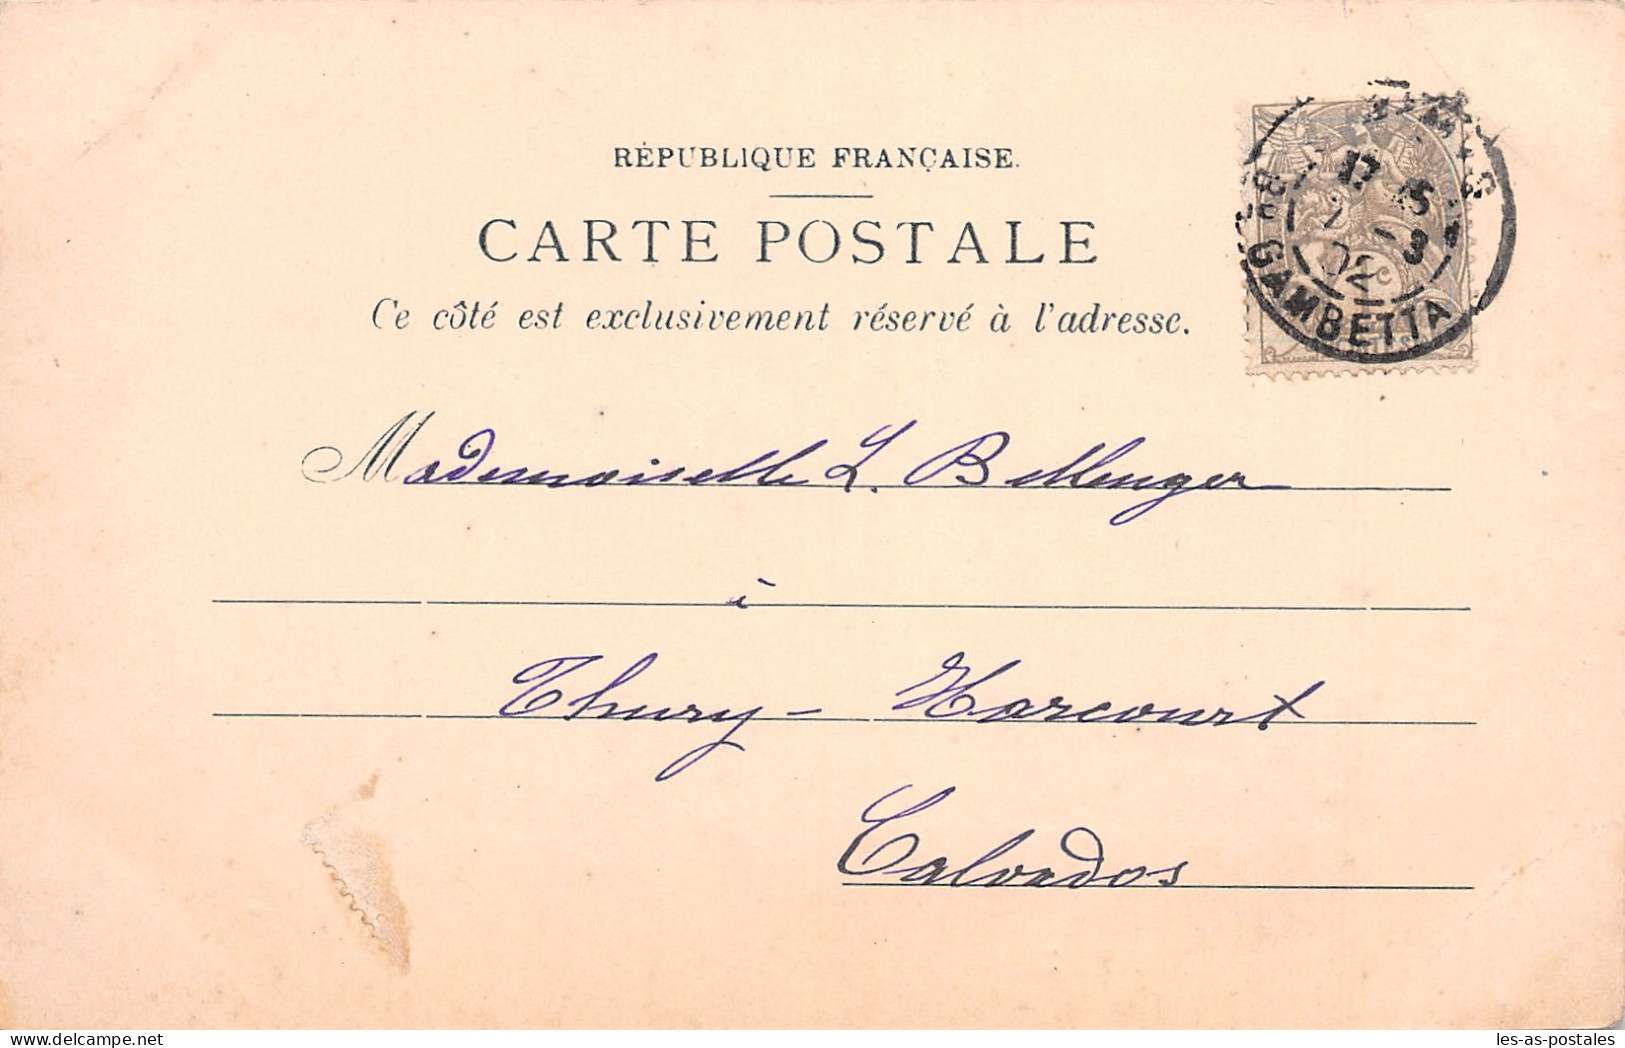 RÉPUBLIQUE FRANÇAISE.
CARTE POSTALE
Ce côté est exclusivement réservé à l'adresse.
17 15
-3
02
GAMBETTA
Mademoiselle L. Bellenger
à
Thury-Harcourt
Calvados
delcampe.net
les-as-postales